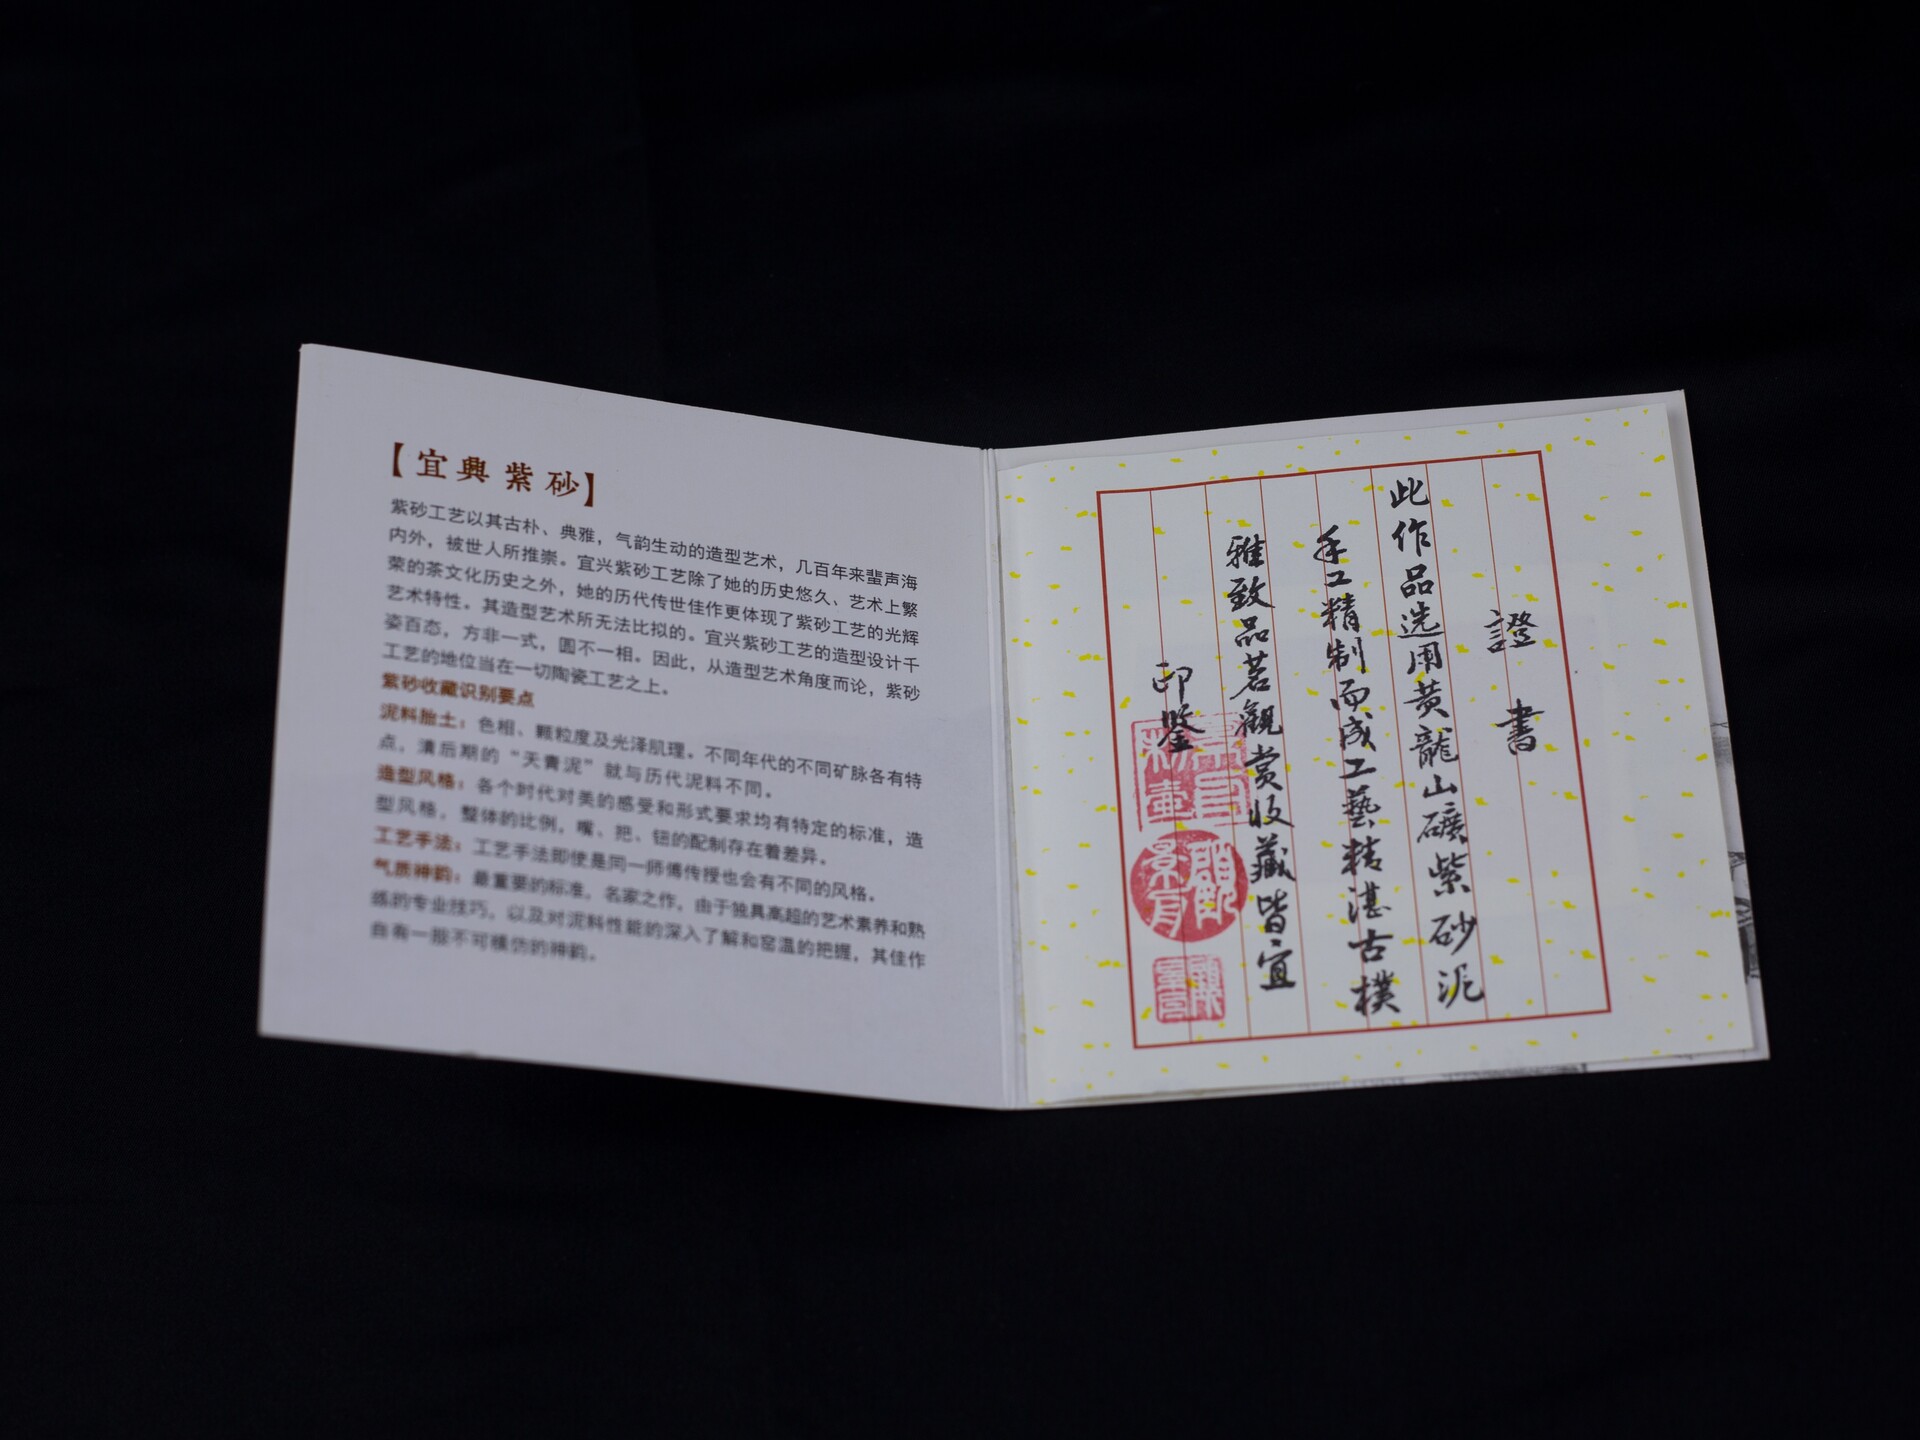 【宜興紫砂】
紫砂工艺以其古朴、典雅，气韵生动的造型艺术，几百年来蜚声海
内外，被世人所推崇。宜兴紫砂工艺除了她的历史悠久、艺术上繁
荣的茶文化历史之外，她的历代传世佳作更体现了紫砂工艺的光辉
艺术特性。其造型艺术所无法比拟的。宜兴紫砂工艺的造型设计千
姿百态，方非一式，圆不一相。因此，从造型艺术角度而论，紫砂
工艺的地位当在一切陶瓷工艺之上。
紫砂收藏识别要点
泥料胎土：色相、颗粒度及光泽肌理。不同年代的不同矿脉各有特
点，清后期的“天青泥”就与历代泥料不同。
造型风格：各个时代对美的感受和形式要求均有特定的标准，造
型风格，整体的比例，嘴、把、钮的配制存在着差异。
工艺手法：工艺手法即使是同一师傅传授也会有不同的风格。
气质神韵：最重要的标准，名家之作，由于独具高超的艺术素养和熟
练的专业技巧，以及对泥料性能的深入了解和窑温的把握，其佳作
自有一指不可模仿的神韵。
證書
此作品选用黄龍山礦紫砂泥
手工精制而成工藝精湛古樸
雅致品茗觀赏收藏皆宜
印鑒
顧景舟